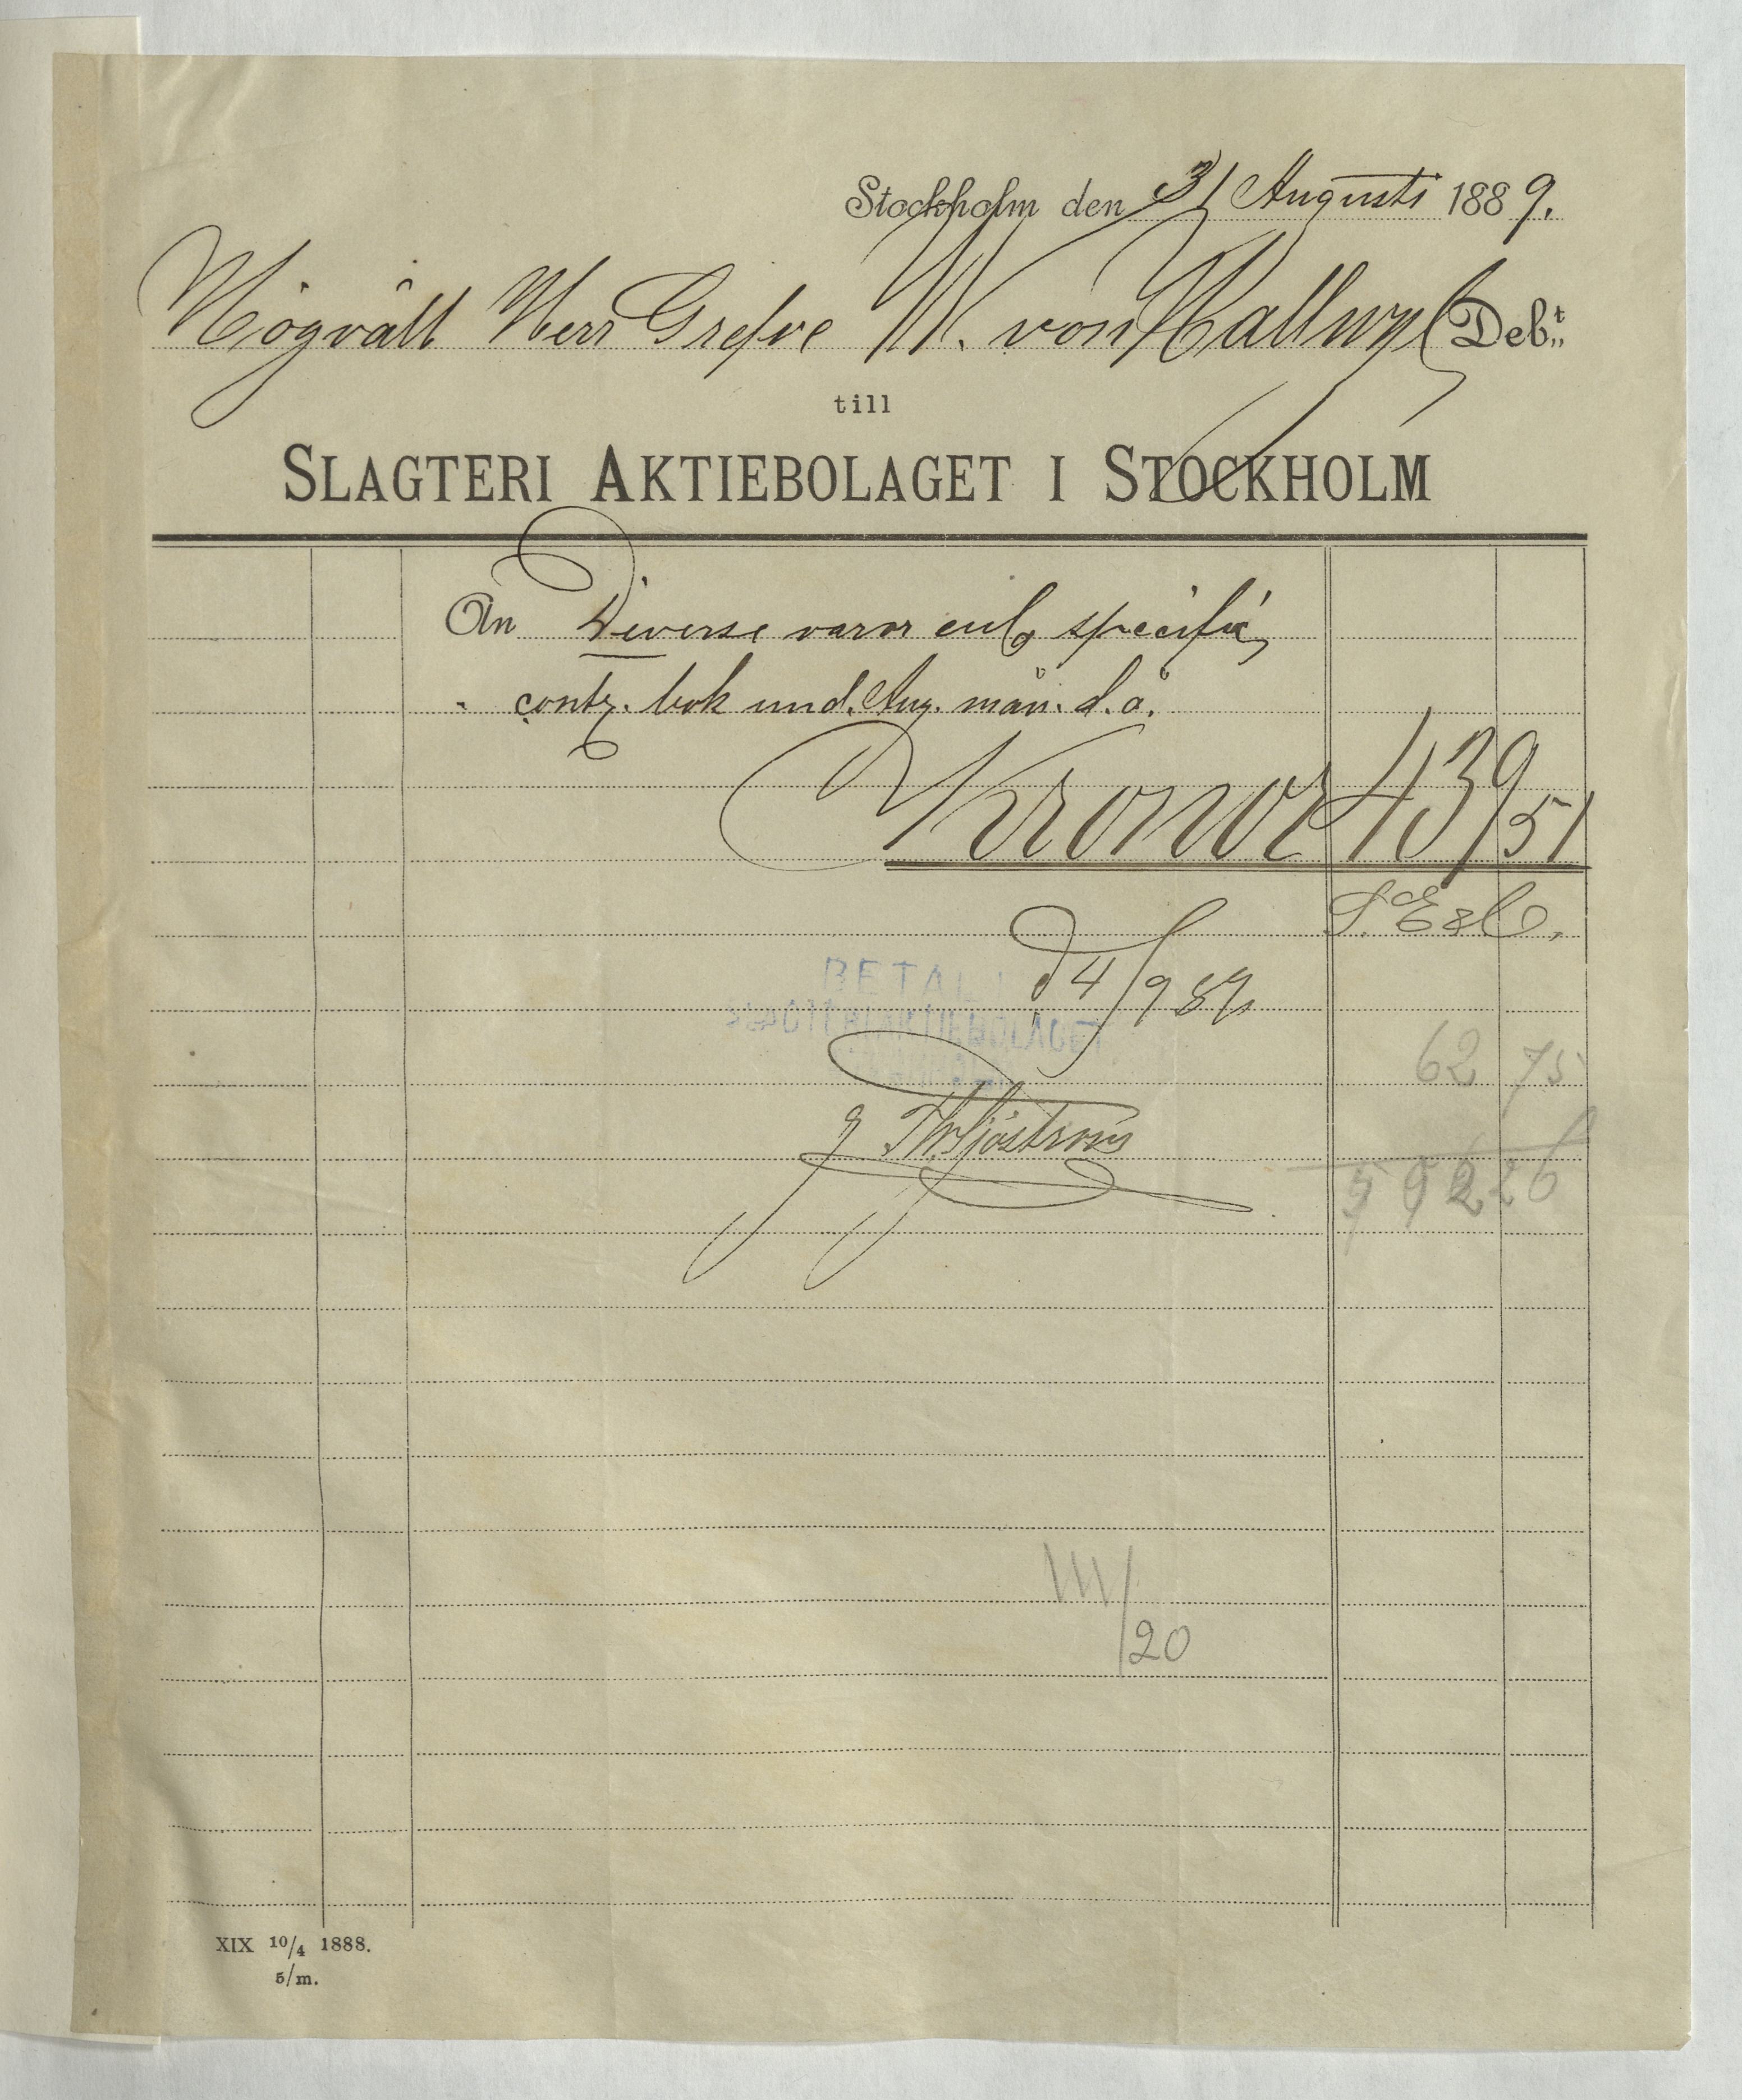 Stockholm den 31 Augusti 1889.
Högvält Herr Grefve W. von Hallwyl Debt.
till
SLAGTERI AKTIEBOLAGET I STOCKHOLM
An Diverse varor enl. specific,
" contr. bok und. Aug. mån. d. å.
Kronor 439 51
S. E & O.
d 4/9 89
BETALT
SLAGTERI AKTIEBOLAGET
62 75
g Th. Sjöström
26
/20
XIX 10/4 1888.
5/m.